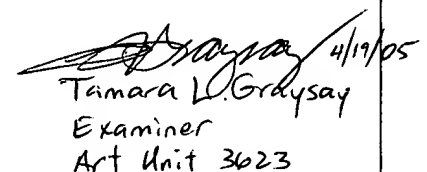 4/19/05
Tamara L. Graysay
Examiner
Art Unit 3623